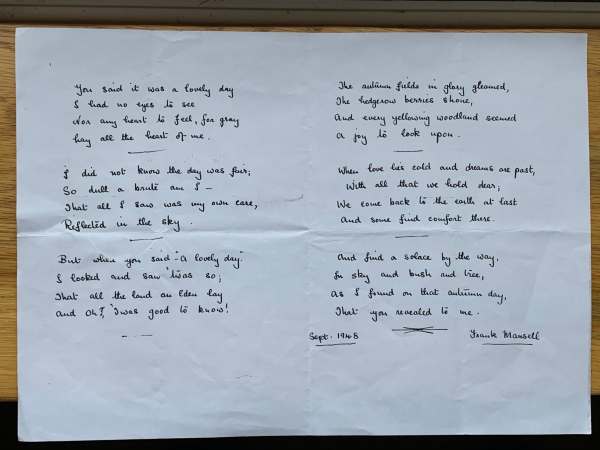 You said it was a lovely day
I had no eyes to see
Nor any heart to feel, for gray
Lay all the heart of me.
I did not know the day was fair;
So dull a brute am I –
That all I saw was my own care,
Reflected in the sky.
But when you said "A lovely day"
I looked and saw 'twas so;
That all the land an Eden lay
And Oh!, 'twas good to know!
The autumn fields in glory gleamed,
The hedgerow berries shone,
And every yellowing woodland seemed
A joy to look upon.
When love lies cold and dreams are past,
With all that we hold dear;
We come back to the earth at last
And some find comfort there.
And find a solace by the way,
In sky and bush and tree,
As I found on that autumn day,
That you revealed to me.
Sept. 1948
Frank Mansell